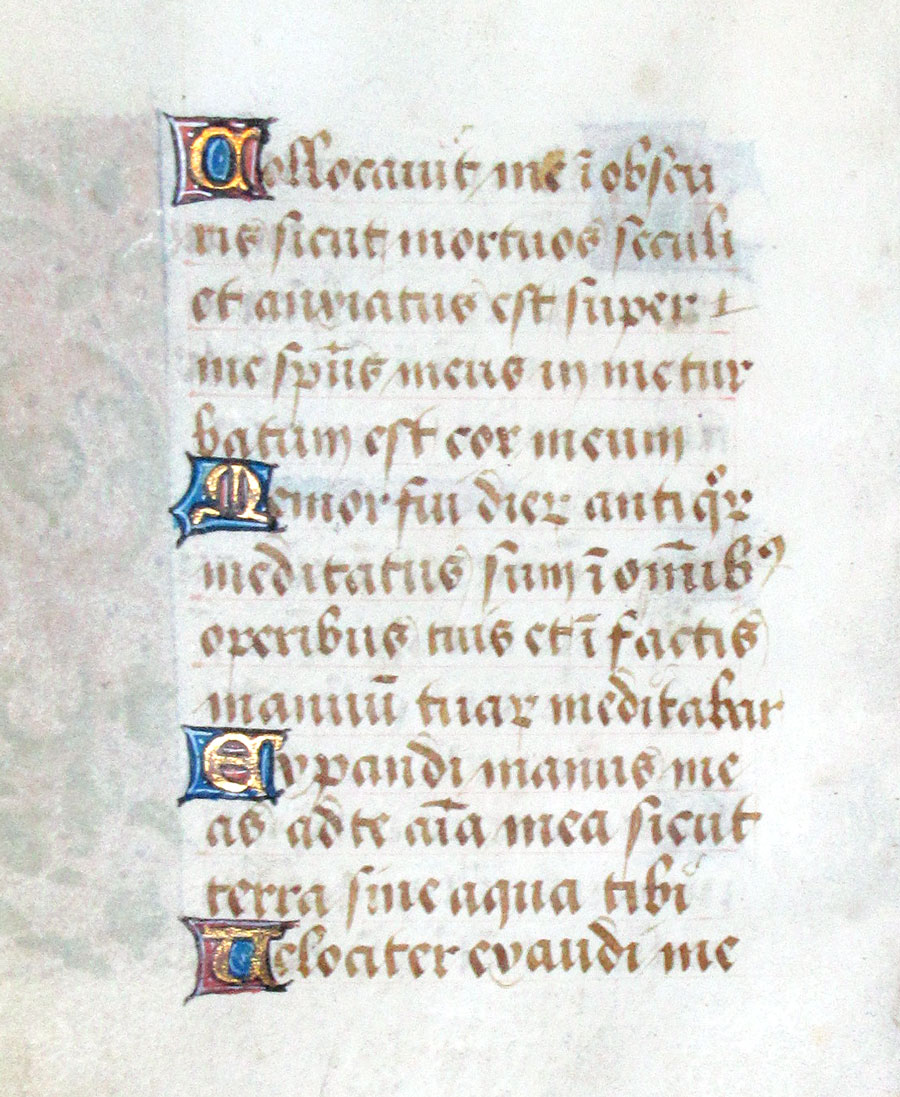 Collocavit me ī obscu
ris sicut mortuos seculi
et anxiatus est super
me spūs meus in me tur
batum est cor meum
Memor fui dieꝝ antiqͦꝝ
meditatus sum ī om̄ibꝰ
operibus tuis et ī factis
manuū tuaꝝ meditabar
Expandi manus me
as ad te aīa mea sicut
terra sine aqua tibi
Velociter exaudi me